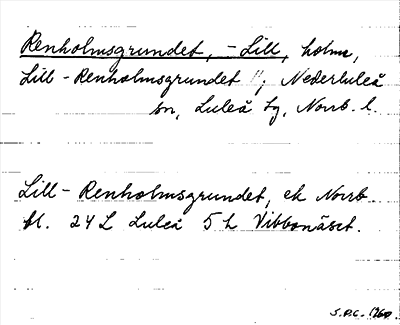 Renholmsgrundet, - Lill, holme,
Lill-Renholmsgrundet "; Nederluleå
sn, Luleå tg, Norrb. l.
Lill-Renholmsgrundet, ek Norrb.
bl. 24 L Luleå 5 h Vibbonäset.